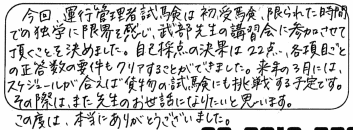 今回、運行管理者試験は初受験、限られた時間
での独学に限界を感じ、武部先生の講習会に参加させて
頂くことを決めました。自己採点の結果は22点、各項目ごと
の正答数の要件もクリアすることができました。来年の3月には、
スケジュールが合えば貨物の試験にも挑戦する予定です。
その際は、また先生のお世話になりたいと思います。
この度は、本当にありがとうございました。